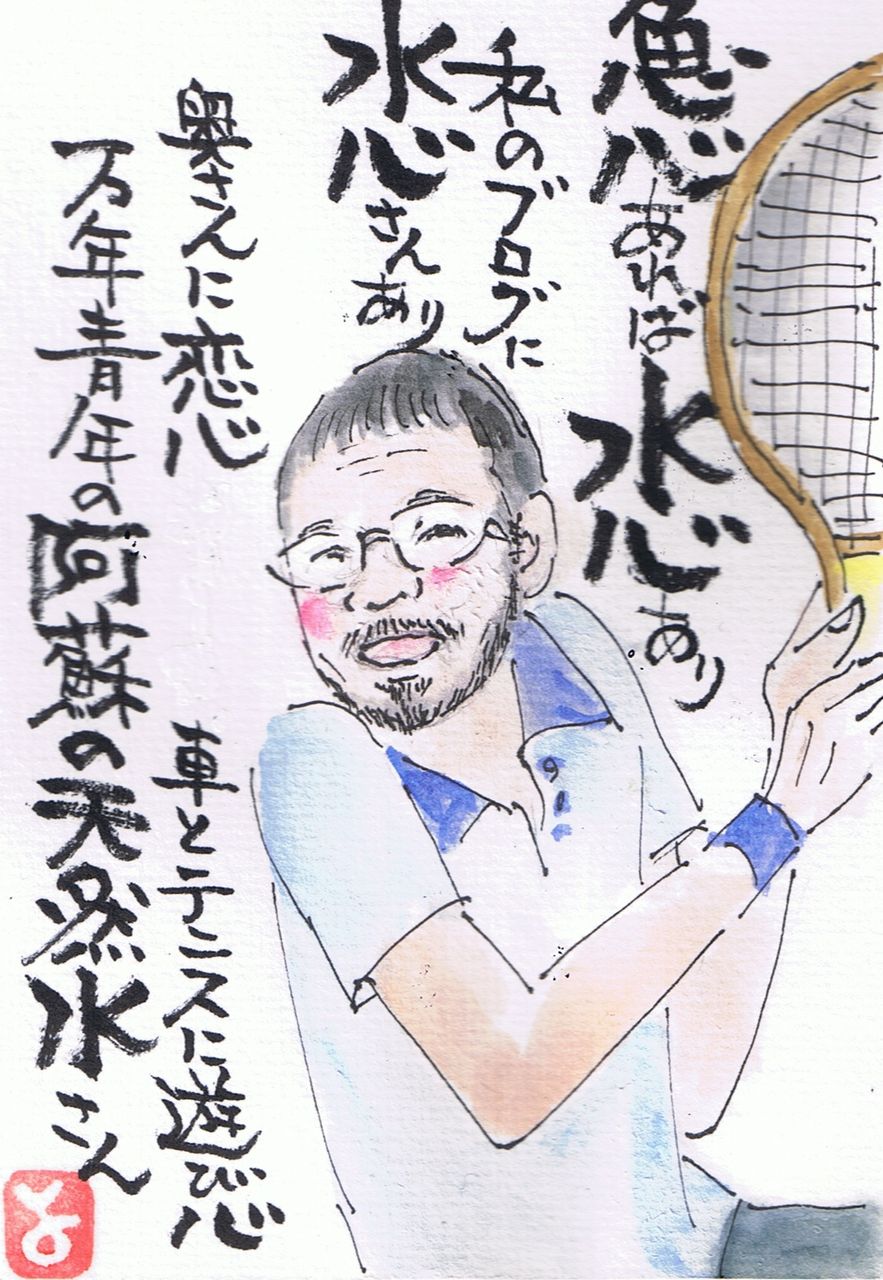 魚心あれば水心あり
私のブログに
水心さんあり
奥さんに恋心
車とテニスに遊び心
万年青年の阿蘇の天然水さん